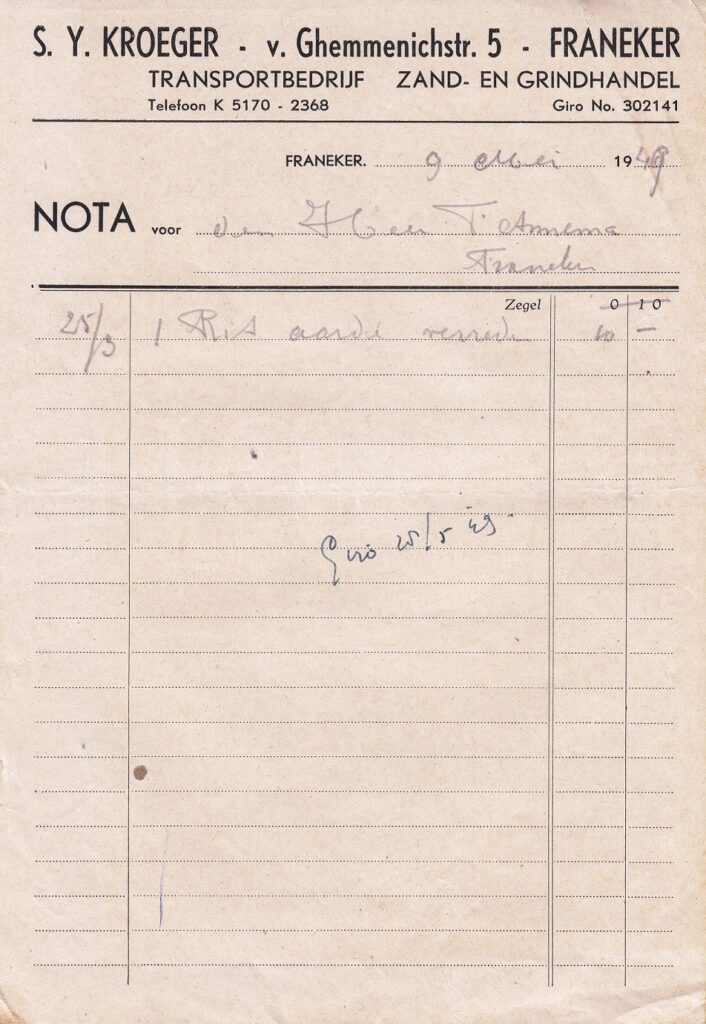 S. Y. KROEGER - v. Ghemmenichstr. 5 - FRANEKER
TRANSPORTBEDRIJF ZAND- EN GRINDHANDEL
Telefoon K 5170 - 2368 Giro No. 302141
FRANEKER. 9 Mei 1949
NOTA voor den Heer T. Annema
Franeker
Zegel 0 10
25/3 1 Rit aarde verreden 10 —
Giro 25/5 49.